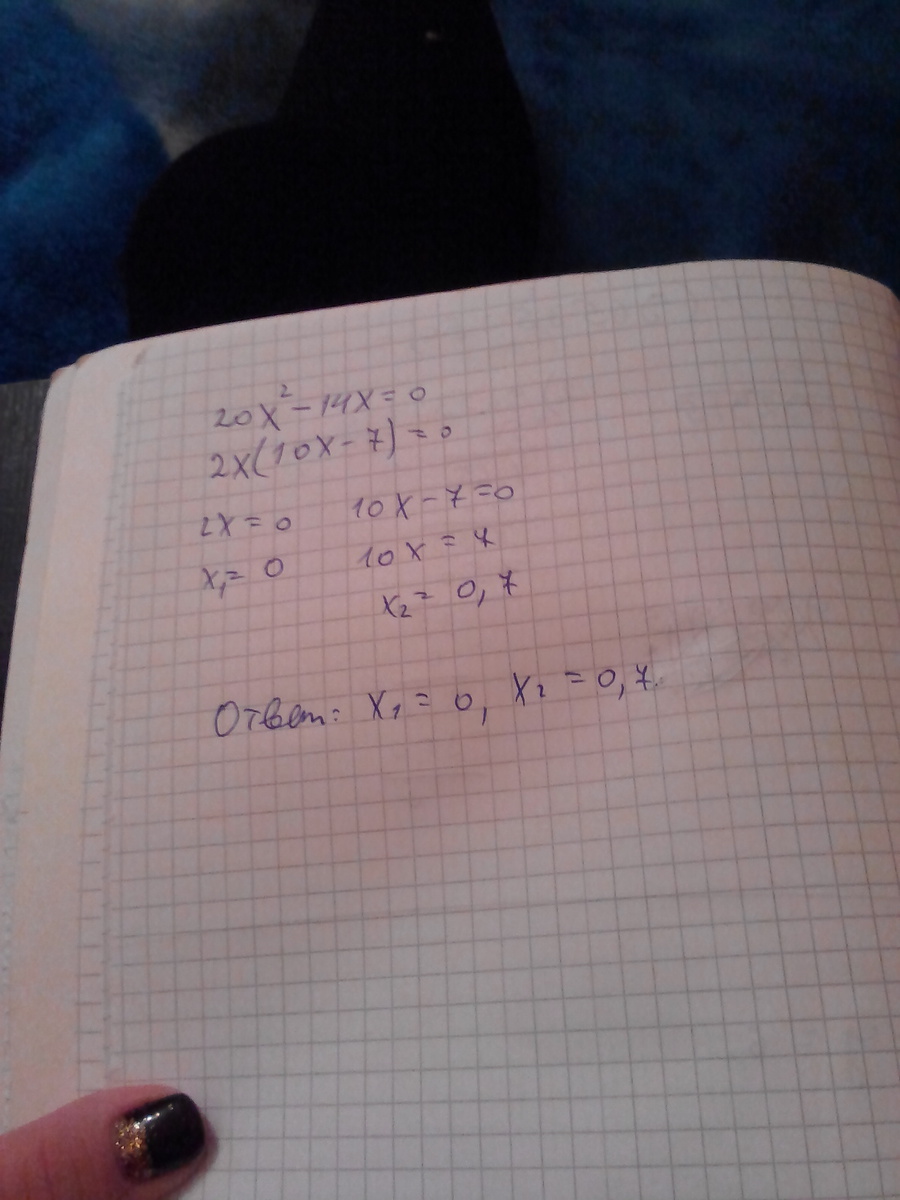 20x² - 14x = 0
2x(10x - 7) = 0
2x = 0 10x - 7 = 0
x₁ = 0 10x = 7
x₂ = 0,7
Ответ: x₁ = 0, x₂ = 0,7.